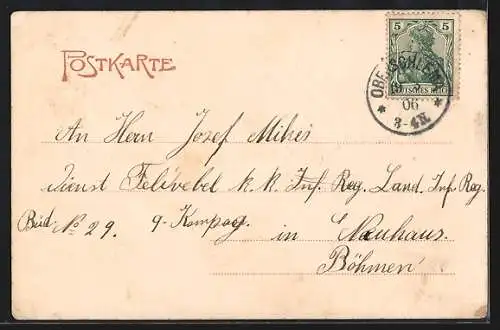 POSTKARTE
5
DEUTSCHES REICH
OBERSCHLEMA
06
3-4N.
An Herrn Josef Mikes
Dienst Felwebel k. k. Inf. Reg. Land. Inf. Reg.
No 29. 9- Kompag
in Neuhaus.
Böhmen